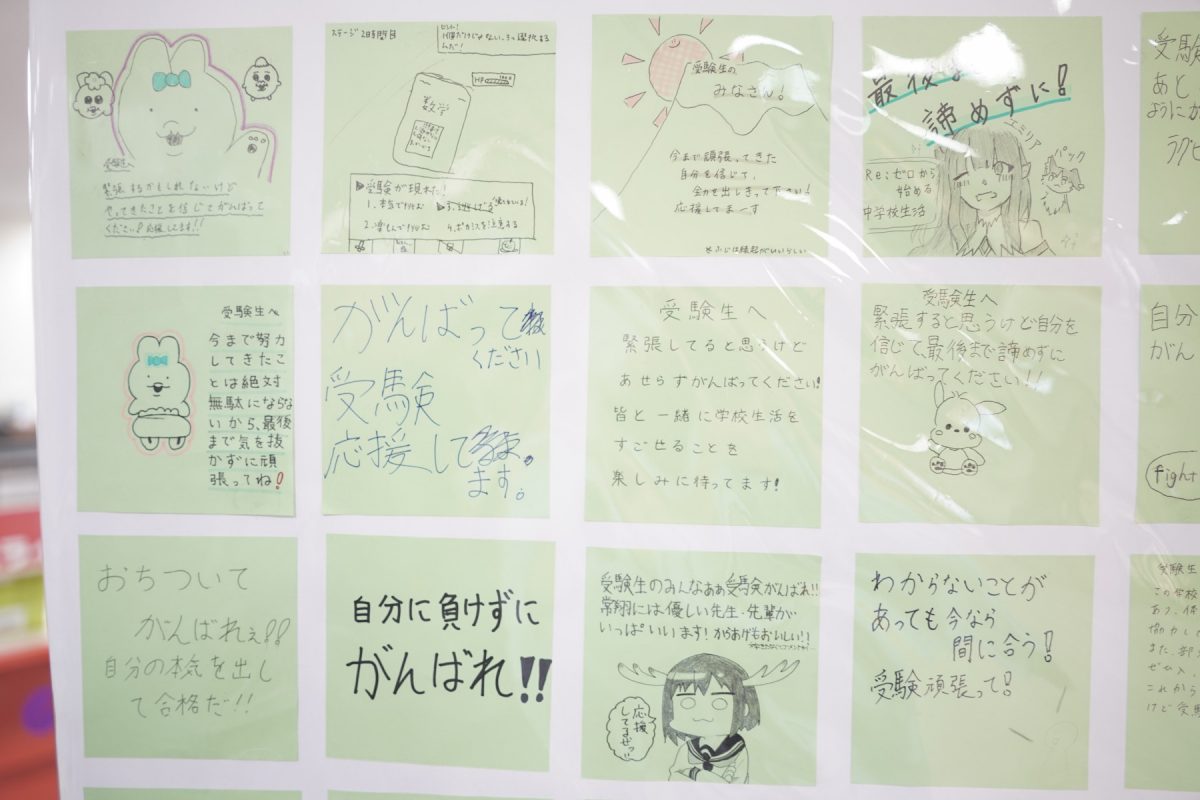 受験生へ
緊張するかもしれないけど
やってきたことを信じてがんばって
ください!応援してます!!
ステージ2日時間目
数学
HP
▶受験が現れた!
受験生の
みなさん!
今まで頑張ってきた
自分を信じて、
全力を出しきって下さい!
応援してまーす
諦めずに!
エミリア
パック
Re:ゼロから
始める
中学校生活
受験
あと
ように
ラグビ
受験生へ
今まで努力
してきたこ
とは絶対
無駄にならな
いから、最後
まで気を抜
かずに頑
張ってね!
がんばって
ください
受験
応援して
ます。
受験生へ
緊張してると思うけど
あせらずがんばってください!
皆と一緒に学校生活を
すごせることを
楽しみに待ってます!
受験生へ
緊張すると思うけど自分を
信じて最後まで諦めずに
がんばってください!!
自分
がん
fight
おちついて
がんばれぇ!!
自分の本気を出し
て合格だ!!
自分に負けずに
がんばれ!!
受験生のみんなぁぁ受験がんばれ!!
常翔には優しい先生・先輩が
いっぱいいます!からあげもおいしい!!
応援
してるぜっ
わからないことが
あっても今なら
間に合う!
受験頑張って!
受験生
この学校
あり、体
協力し
また、部
ぜひ入
これから
けど受験